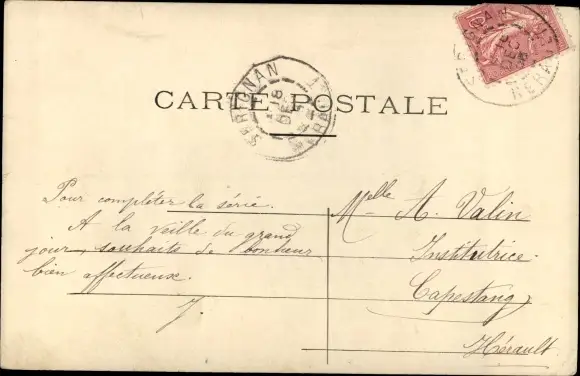 SERIGNAN
HERAULT
18
DEC
SERIGNAN
HERAULT
CARTE POSTALE
Pour compléter la série.
A la veille du grand
jour, souhaits de bonheur
bien affectueux.
J.
Melle A. Valin
Institutrice.
Capestang
Hérault